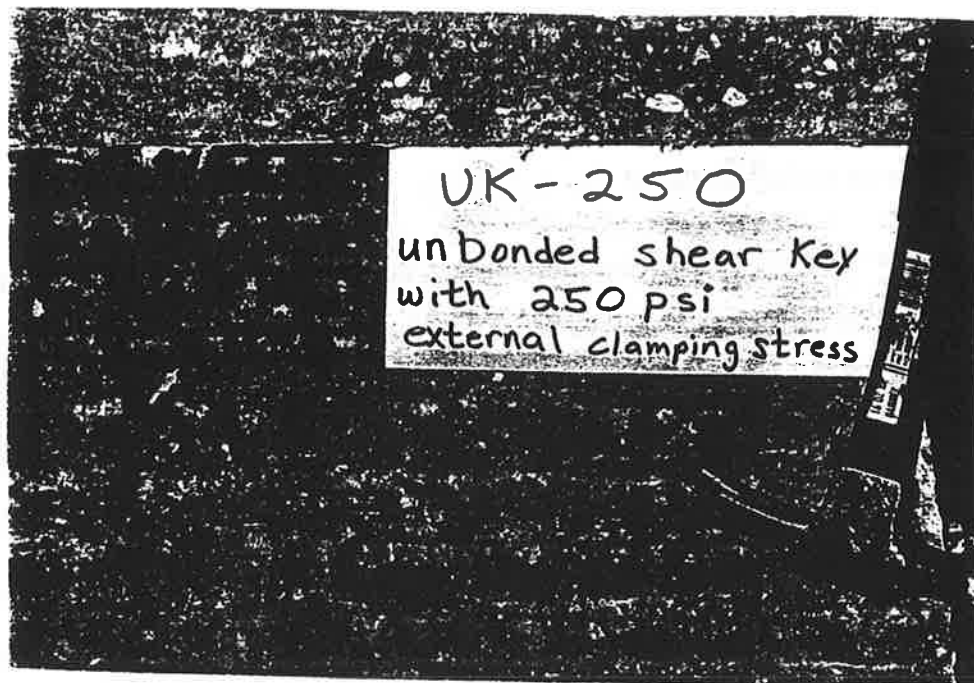 UK-250
unbonded shear Key
with 250 psi
external clamping stress